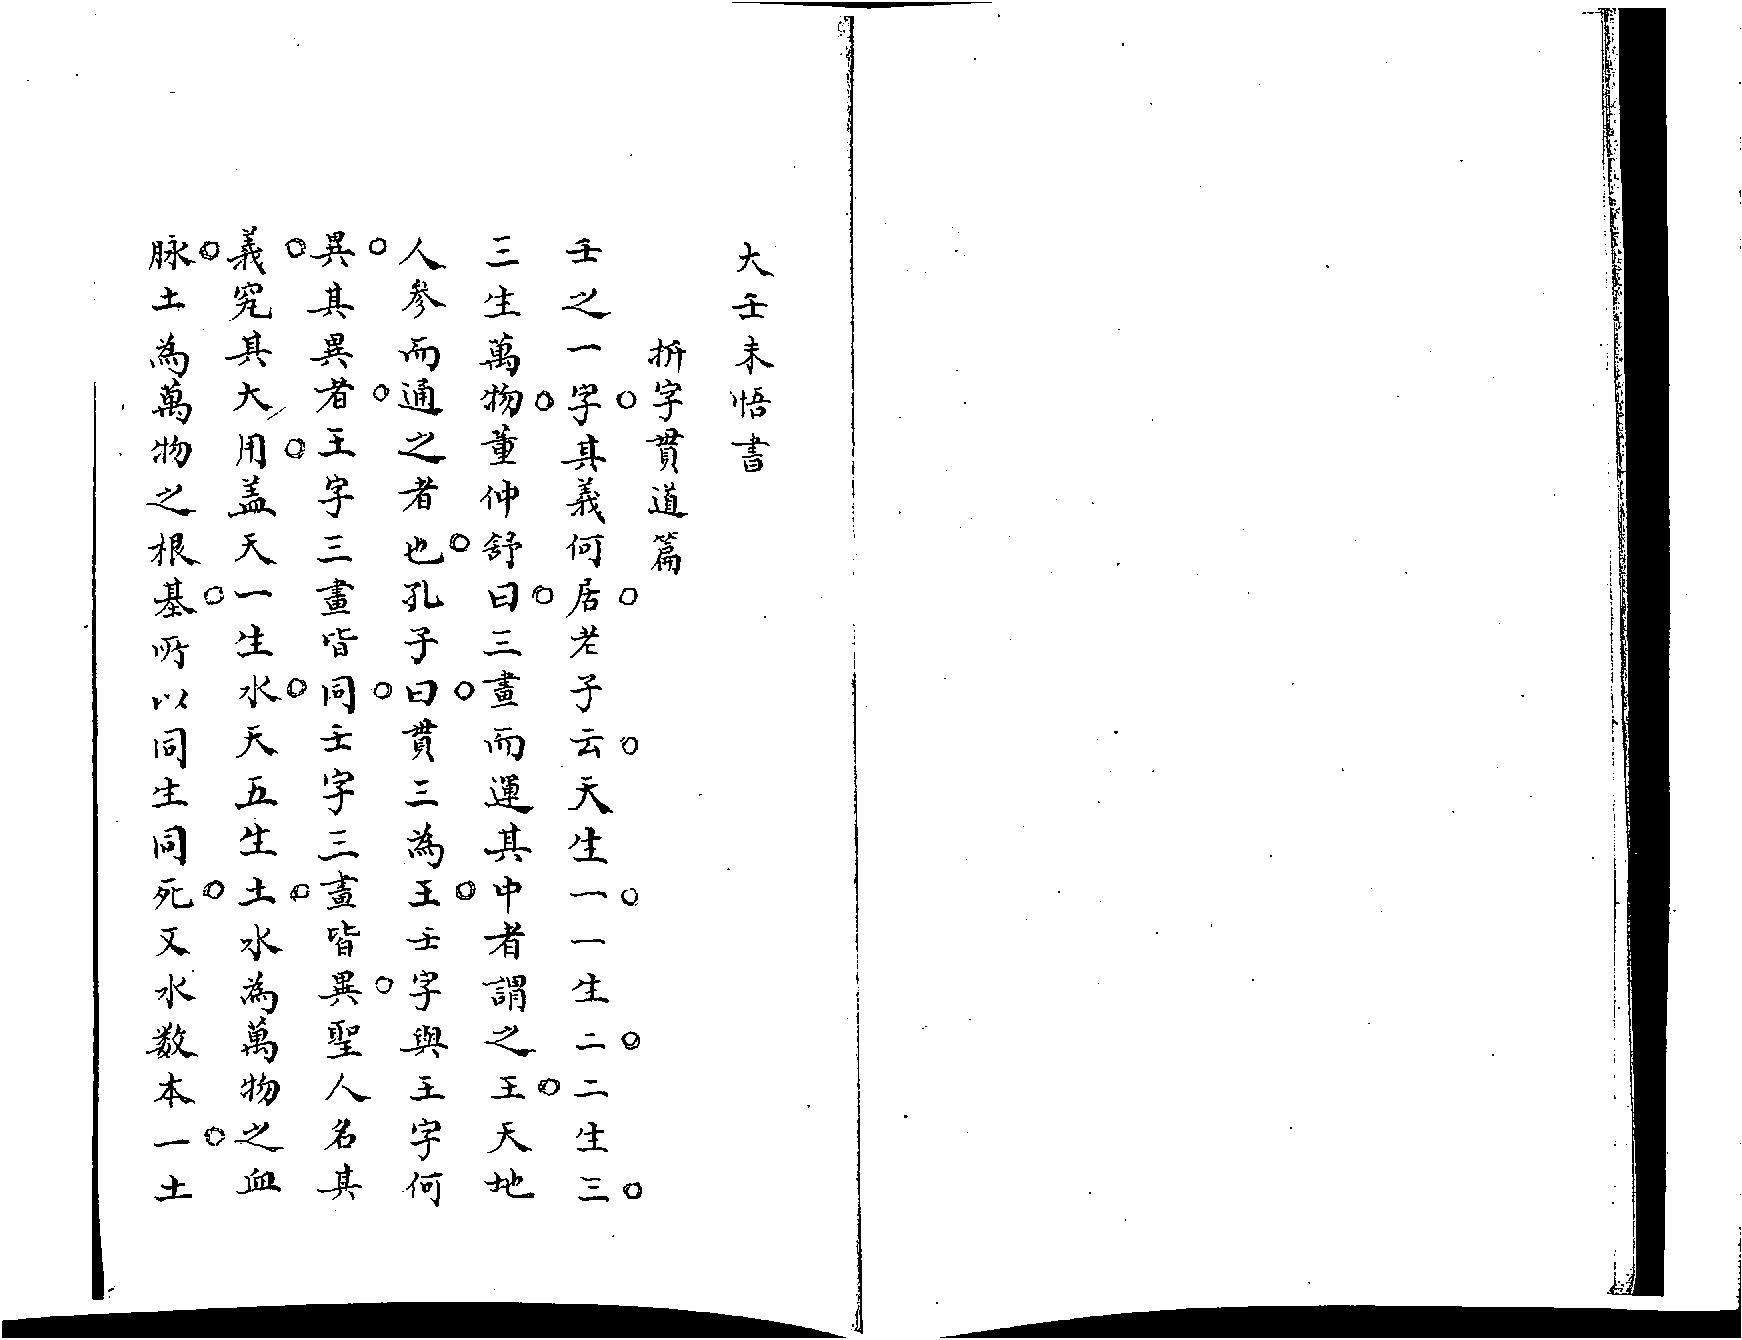 大壬未悟書
拆字貫道篇
壬之一字其義何居老子云天生一一生二二生三
三生萬物董仲舒曰三畫而運其中者謂之王天地
人參而通之者也孔子曰貫三為王壬字與王字何
異其異者王字三畫皆同壬字三畫皆異聖人名其
義究其大用盖天一生水天五生土水為萬物之血
脉土為萬物之根基所以同生同死又水数本一土